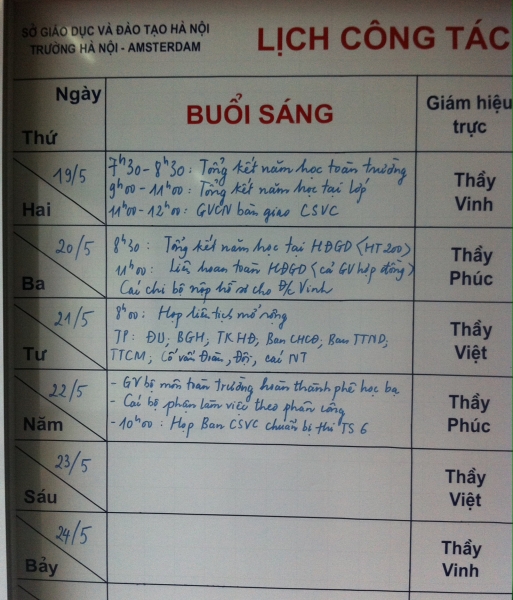 SỞ GIÁO DỤC VÀ ĐÀO TẠO HÀ NỘI
TRƯỜNG HÀ NỘI - AMSTERDAM
LỊCH CÔNG TÁC
Ngày
Thứ
BUỔI SÁNG
Giám hiệu
trực
19/5
Hai
7h30 - 8h30: Tổng kết năm học toàn trường
9h00 - 11h00: Tổng kết năm học tại lớp
11h00 - 12h00: GVCN bàn giao CSVC
Thầy
Vinh
20/5
Ba
8h30: Tổng kết năm học tại HĐGD (HT 200)
11h00: Liên hoan toàn HĐGD (cả GV hợp đồng)
Các chi bộ nộp hồ sơ cho Đ/c Vinh
Thầy
Phúc
21/5
Tư
8h00: Họp liên tịch mở rộng
TP: ĐU, BGH, TKHĐ, Ban CHCĐ, Ban TTND,
TTCM, Cố vấn Đoàn, Đội, các NT
Thầy
Việt
22/5
Năm
- GV bộ môn toàn trường hoàn thành phê học bạ
- Các bộ phận làm việc theo phân công
- 10h00: Họp Ban CSVC chuẩn bị thi TS 6
Thầy
Phúc
23/5
Sáu
Thầy
Việt
24/5
Bảy
Thầy
Vinh